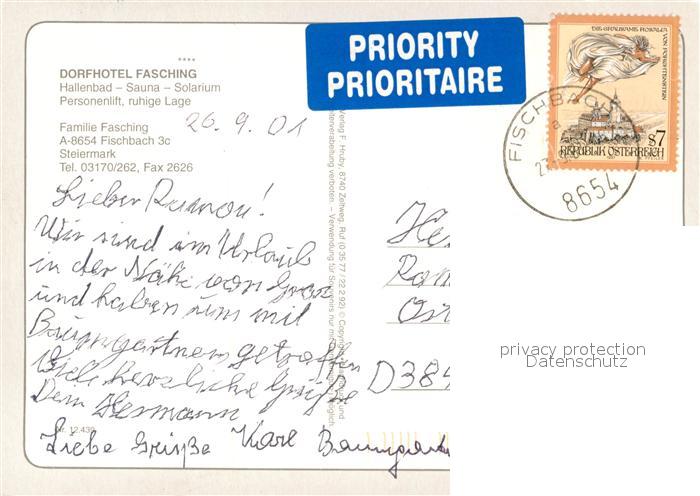 ****
DORFHOTEL FASCHING
Hallenbad – Sauna – Solarium
Personenlift, ruhige Lage
Familie Fasching
A-8654 Fischbach 3c
Steiermark
Tel. 03170/262, Fax 2626
26.9.01
PRIORITY
PRIORITAIRE
DIE GRAUSAME ROSALIA VON FORCHTENSTEIN
S7
REPUBLIK ÖSTERREICH
FISCHBACH
8654
Verlag F. Hruby, 8740 Zeltweg, Ruf (0 35 77 / 22 2 92) © Copyright
Lieber Ramon!
Wir sind im Urlaub
in der Nähe von Graz
und haben uns mit
Baumgartners getroffen
Viele herzliche Grüße
Dein Hermann
Liebe Grüße Karl Baumgart
Nr. 12.439
He
Ram
Ost
D384
privacy protection
Datenschutz